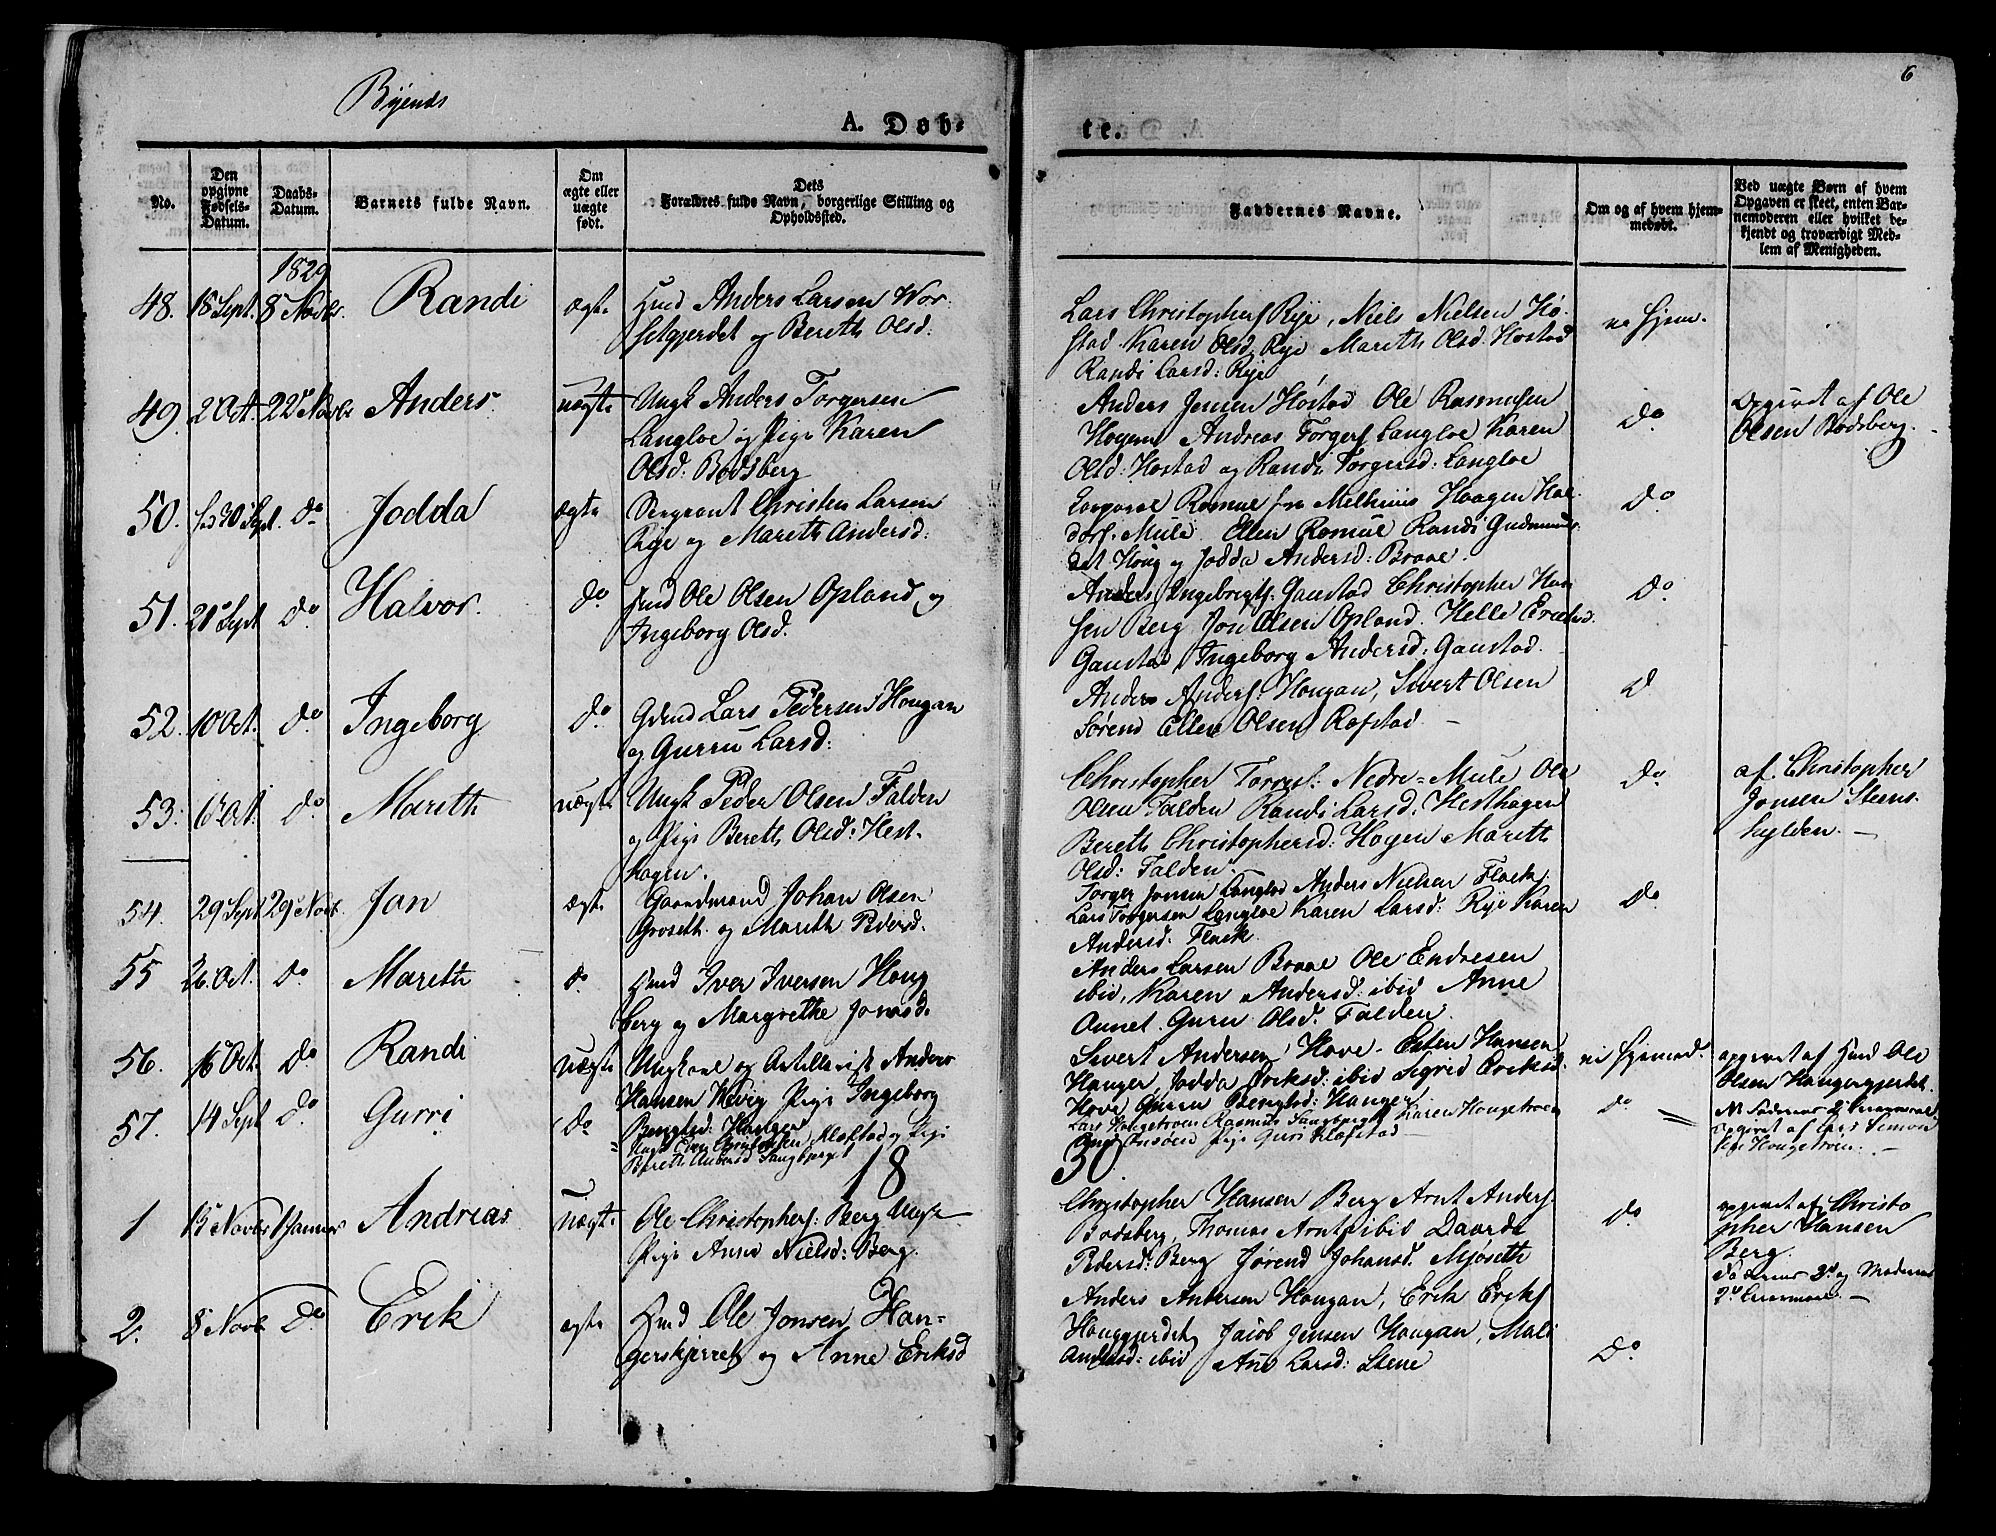 6
Byens
A. Døb-
te.
No.
Den
opgivne
Fødsels-
Datum.
Daabs-
Datum.
Barnets fulde Navn.
Om
ægte eller
uægte
født.
Dets
Forældres fulde Navn, borgerlige Stilling og
Opholdssted.
Faddernes Navne.
Om og af hvem hjem-
medøbt.
Ved uægte Børn af hvem
Opgaven er skeet, enten Bar-
nemoderen eller hvilket be-
kjendt og troværdigt Med-
lem af Menigheden.
1829
48. 18 Sept. 8 Novbr. Randi ægte Hmd Anders Larsen Wor-
setgjerdet og Bereth Olsd.
Lars Christophers Rye, Niels Nielsen Hø-
stad Karen Olsd Rye Mareth Olsd Hostad
Randi Larsd: Rye
ei hjem.
49. 2 Oct. 22 Novbr Anders. uægte Ungk Anders Torgersen
Langloe og Pige Karen
Olsd: Bodsberg
Anders Jensen Høstad Ole Rasmusen
Hogem Andreas Torgers Langloe Karen
Olsd: Hostad og Randi Torgersd: Langloe
do
opgivet af Ole
Olsen Bodsberg.
50. 30 Sept. do Jodda ægte Sergeant Christen Larsen
Rye og Mareth Andersd:
Corporal Romul fra Melhuus Haagen Hal-
dors. Mule Ellen Romul Randi Gudmunds-
dat Houg og Jodda Andersd: Braae.
do
51. 21 Sept do Halvor. do Hmd Ole Olsen Opland og
Ingeborg Olsd.
Anders Ingebrigts. Gaustad Christopher Han-
sen Berg Jon Olsen Opland. Helle Ericksd.
Gaustad Ingeborg Andersd: Gaustad.
do
52. 10 Oct. do Ingeborg do Gdmd Lars Pedersen Hougan
og Gurru Larsd:
Anders Anders: Hougan, Sivert Olsen
Sørend Ellen Olsen Rofstad —
d
53. Oct. do Mareth uægte Ungk Peder Olsen Falden
og Pige Bereth Olsd: Hest-
hagen.
Christopher Torres: Nedre-Mule Ole
Olsen Falden Randi Larsd: Hesthagen
Bereth Christophersd: Hogen Mareth
Olsd: Falden.
do
af Christopher
Jonsen Steens-
hylden. —
54. 29 Sept 29 Novb. Jon ægte Gaardmand Johan Olsen
Groseth. og Mareth Pedersd.
Torger Jonsen Langloe Anders Nielsen Floek.
Lars Torgersen Langloe Karen Larsd: Rye Karen
Andersd. Floek.
do
55 26. Oct. do Mareth do Hmd Iver Iversen Houg
berg og Margrethe Jonasd.
Anders Larsen Braae Ole Endresen
ibid, Karen Andersd: ibid Anne
Guru Olsd. Falden.
56. 16 Oct. do Randi uægte Ungkarl og Artillerist Anders
Hansen Wevig Pige Ingeborg
Bengtsd: Hanger
Sivert Andersen Hove. Esten Hansen
Hanger, Jodda Eriksd: ibid Sigrid Eriksd.
Hove Gurru Bengtsd: Hanger
ei hjemmed.
opgivet af Hmd Ole
Olsen Hangergjerdet.
57. 14 Sept do Gurri do Ungk Christensen Klokstad og Pige
Bereth Andersd Saugbjerget
Lars Hougetrøen Rasmus Saugbjerget Karen Hougetrøen
Pige Guri Klofstad —
do
opgivet af Lars Simon
sen Hougetrøen. —
18
30
1 15 Novbr 1 Januar Andreas uægte Ole Christophers: Berg Ungk
Pige Anne Nielsd: Berg.
Christopher Hansen Berg Arnt Anders.
Bodsberg, Thomas Arnts ibid Daarde
Pedersd: Berg Jørend Johansd. Mjøseth
do
opgivet af Christo
pher Hansen
Berg.
Faderens 3d og Moderens
2d Leiermaal. —
2. 8 Novb do Erik ægte Hmd Ole Jonsen Han-
gerskjerret og Anne Eriksd
Anders Andersen Hougan, Erik Eriks
Houggjerdet Jacob Jensen Hougan, Mali
Andersd: ibid Ane Larsd: Stene
do